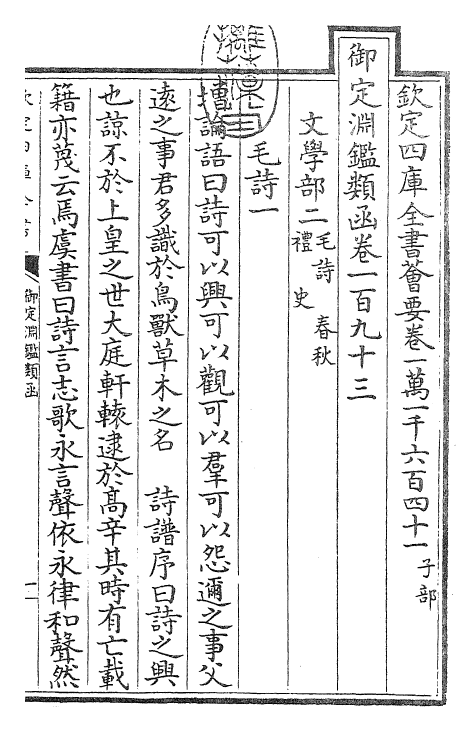 欽定四庫全書薈要卷一萬一千六百四十一 子部
御定淵鑑類函卷一百九十三
文學部二 毛詩 春秋
禮 史
毛詩一
增論語曰詩可以興可以觀可以羣可以怨邇之事父
遠之事君多識於鳥獸草木之名 詩譜序曰詩之興
也諒不於上皇之世大庭軒轅逮於高辛其時有亡載
籍亦蔑云焉虞書曰詩言志歌永言聲依永律和聲然
御定淵鑑類函